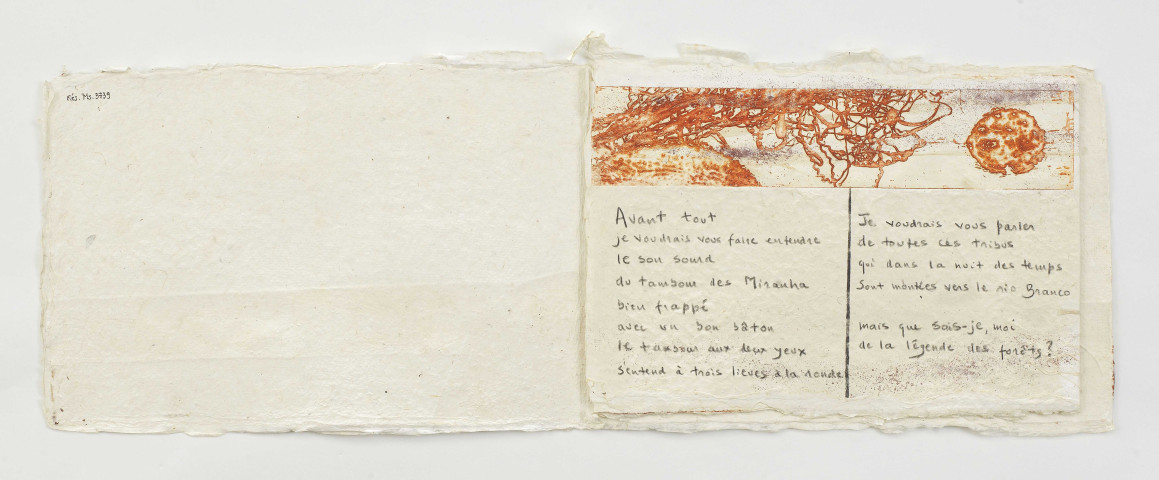 Rés. Ms. 5535
Avant tout
je voudrais vous faire entendre
le son sourd
du tambour des Miranha
bien frappé
avec un bon bâton
le tambour aux deux yeux
s'entend à trois lieues à la ronde
Je voudrais vous parler
de toutes ces tribus
qui dans la nuit des temps
sont montées vers le rio Branco
mais que sais-je, moi
de la légende des forêts?